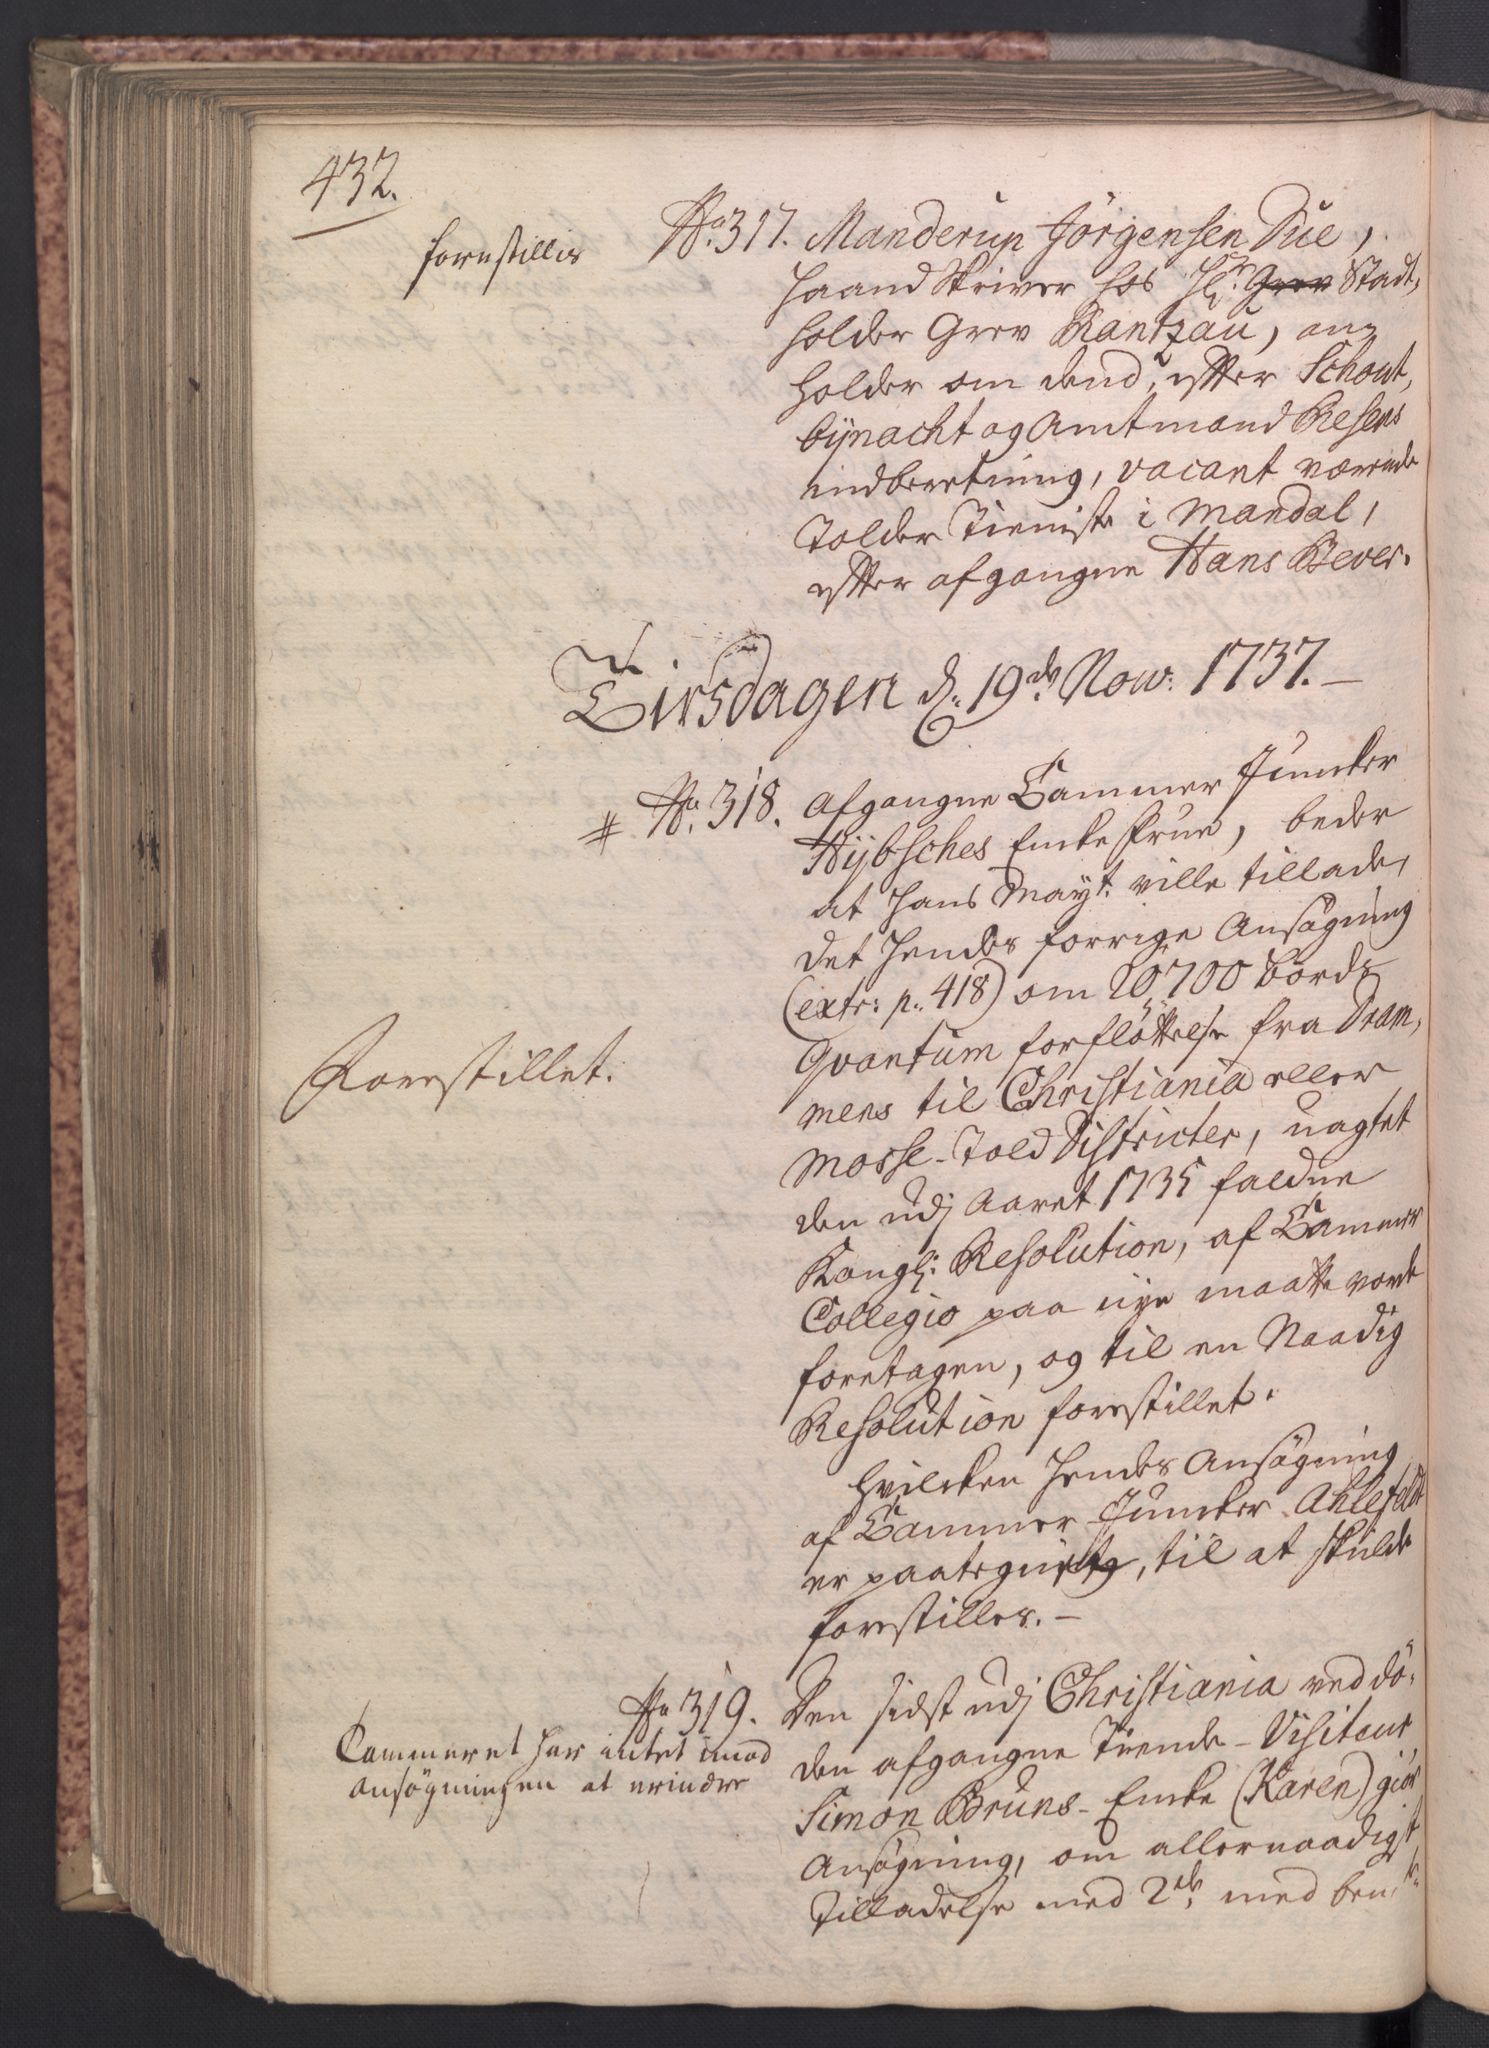 432.
forestillis
No. 317. Manderup Jörgensen Due,
Haand Skriver hos Hr. Grev Stadt,
holder Grev Rantzau, an-
holder om dend, efter Schout,
bÿnacht og Amtmand Resens
indberetning, vacant værende
Tolder Tieniste i Mandal,
efter afgangne Hans Bever.
Tirsdagen d. 19de Nov: 1737.
# No. 318. Afgangne Cammer Juncker
Hÿbsches Encke Frue, beder
at Hans Mayt. ville tillade,
det Hendes forrige Ansøgning
(extr: p. 418) om 20700 bords
Qvantum forfløttelse fra Dram,
mens til Christiania eller
Mosse-Told Districter, uagtet
den udj Aaret 1735 faldne
Kongl: Resolution, af Cammer
Collegio paa nye maatte vorde
foretagen, og til en Naadig
Resolution forestillet.
Forestillet.
Hvilcken Hendes Ansøgning
af Cammer-Juncker Ahlefeldt
er paategnet, til at skulde
forestilles.
No 319. Den sidst udj Christiania ved dö-
den afgangne Tiende-Visiteur
Simon Bruns-Encke (Karen) giør
Ansøgning, om allernaadigst
Tilladelse med 2de med
Cammeret har intet imod
ansøgningen at erindre